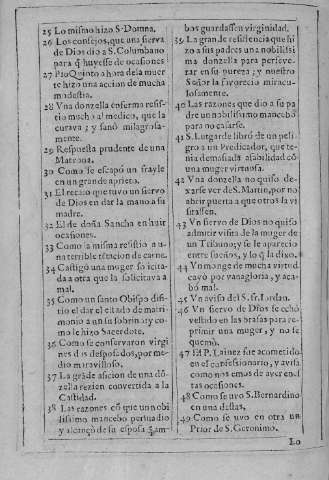 25 Lo mismo hizo S. Domna.
26 Los consejos, que una sierva
de Dios dio a S. Columbano
para q̃ huyesse de ocasiones
27 Pio Quinto a hora de la muer
te hizo una accion de mucha
modestia.
28 Vna donzella enferma resis-
tio mucho al medico, que la
curava; y sanò milagrosa-
mente.
29 Respuesta prudente de una
Matrona.
30 Como se escapò un frayle
en un grande aprieto.
31 El recato que tuvo un siervo
de Dios en dar la mano a su
madre.
32 El de doña Sancha en huir
ocasiones.
33 Como la misma resistio a u-
na terrible tentacion de carne.
34 Castigò una muger solicita-
da a otra que la solicitava a
mal.
35 Como un santo Obispo disua-
tio el dar el estado de matri-
monio a un su sobrino; y co-
mo le hizo Sacerdote.
36 Como se conservaron virgi-
nes dos desposados, por me-
dio maravilloso.
37 La grãde aficion de una dõ-
zella rezien convertida a la
Castidad.
38 Las razones cõ que un nobi
lissimo mancebo persuadio
y alcançò de su esposa q̃ am-
bos guardassen virginidad.
39 La grande resistencia que hi
zo a sus padres una nobilissi
ma donzella para perseve-
rar en su pureza; y nuestro
Señor la favorecio miracu-
losamente.
40 Las razones que dio a su pa
dre un nobilissimo mancebo
para no casarse.
41 S. Lutgarde librò de un peli-
gro a un Predicador, que te-
nia demasiada afabilidad cõ
una muger virtuosa.
42 Vna donzella no quiso de-
xarse ver de S. Martin, por no
abrir puerta a que otros la vi
sitassen.
43 Vn siervo de Dios no quiso
admitir visita de la muger de
un Tribuno; y se le aparecio
entre sueños, y lo q̃ la dixo.
44 Vn monge de mucha virtud
cayò por vanagloria, y aca-
bò mal.
45 Vn aviso del S. fr. Iordan.
46 Vn siervo de Dios se echò
vestido en las brasas para re-
primir una muger, y no se
quemò.
47 El P. Lainez fue acometido
en el confessionario, y avisa
como nos emos de aver en es
tas ocasiones.
48 Como se uvo S. Bernardino
en una destas,
49 Como se uvo en otra un
Prior de S. Geronimo.
Lo